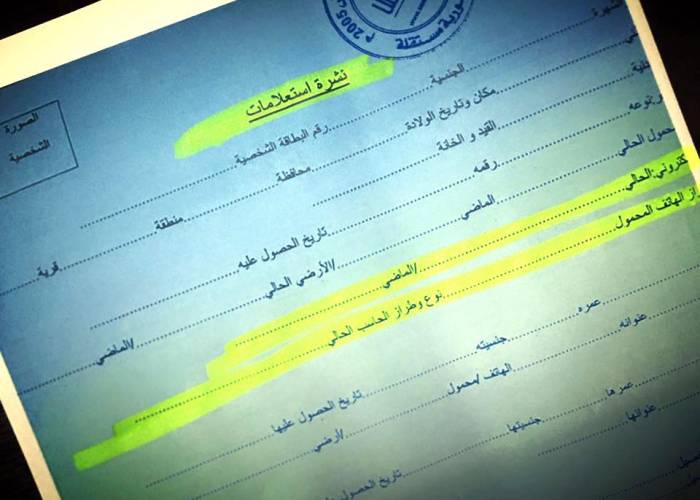 2005 م
ورية مستقلة
نشرة استعلامات
الصورة
الشخصية
الشهرة
الجنسية.......................رقم البطاقة الشخصية
مكان وتاريخ الولادة...................محافظة...................منطقة...................قرية
القيد و الخانة
نوعه...................رقمه...................تاريخ الحصول عليه
الحالي...................الماضي...................الأرضي الحالي...................الماضي
الحالي...................الماضي
الهاتف المحمول...................نوع وطراز الحاسب الحالي
عمره...................جنسيته...................تاريخ الحصول عليها
عنوانه...................الهاتف /محمول...................أرضي
عمرها...................جنسيتها...................تاريخ الحصول
عنوانها